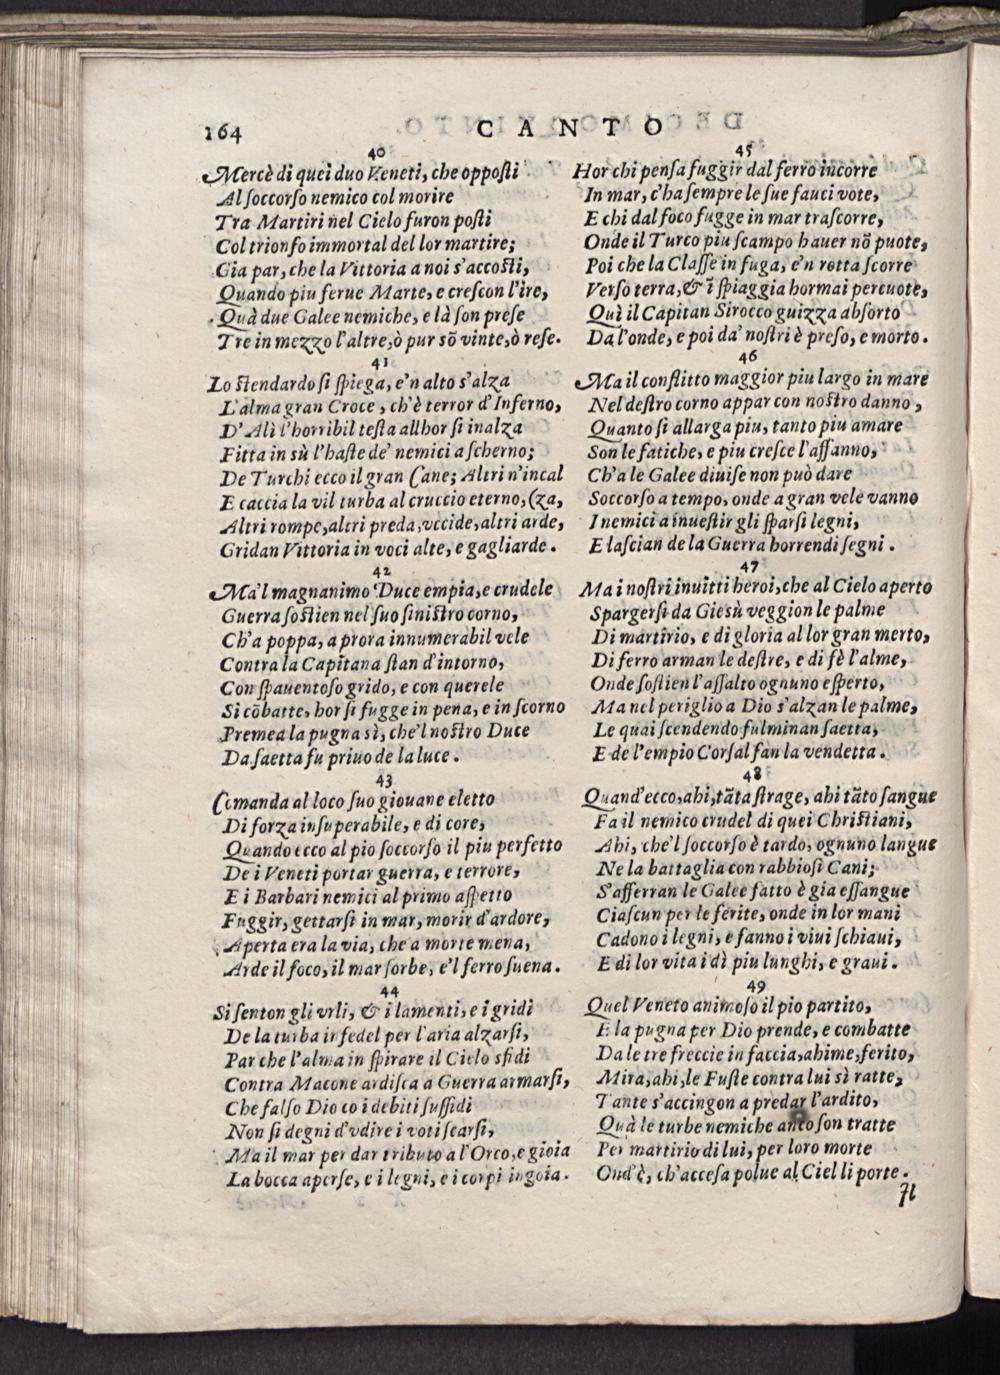 164 CANTO
40
Mercè di quei duo Veneti, che opposti
Al soccorso nemico col morire
Tra Martiri nel Cielo furon posti
Col trionfo immortal del lor martire;
Gia par, che la Vittoria a noi s'accosti,
Quando piu ferue Marte, e crescon l'ire,
Quà due Galee nemiche, e là son prese
Tre in mezzo l'altre, ò pur sõ vinte, ò rese.
41
Lo stendardo si spiega, e'n alto s'alza
L'alma gran Croce, ch'è terror d'Inferno,
D'Alì l'horribil testa allhor si inalza
Fitta in sù l'haste de' nemici a scherno;
De Turchi ecco il gran Cane; Altri n'incal
E caccia la vil turba al cruccio eterno, (za,
Altri rompe, altri preda, vccide, altri arde,
Gridan Vittoria in voci alte, e gagliarde.
42
Ma'l magnanimo Duce empia, e crudele
Guerra sostien nel suo sinistro corno,
Ch'a poppa, a prora innumerabil vele
Contra la Capitana stan d'intorno,
Con spauentoso grido, e con querele
Si cõbatte, hor si fugge in pena, e in scorno
Premea la pugna sì, che'l nostro Duce
Da saetta fu priuo de la luce.
43
Comanda al loco suo giouane eletto
Di forza insuperabile, e di core,
Quando ecco al pio soccorso il piu perfetto
De i Veneti portar guerra, e terrore,
E i Barbari nemici al primo aspetto
Fuggir, gettarsi in mar, morir d'ardore,
Aperta era la via, che a morte mena,
Arde il foco, il mar sorbe, e'l ferro suena.
44
Si senton gli vrli, & i lamenti, e i gridi
De la turba infedel per l'aria alzarsi,
Par che l'alma in spirare il Cielo sfidi
Contra Macone ardisca a Guerra armarsi,
Che falso Dio co i debiti sussidi
Non si degni d'vdire i voti scarsi,
Ma il mar per dar tributo a l'Orco, e gioia
La bocca aperse, e i legni, e i corpi ingoia.
45
Hor chi pensa fuggir dal ferro incorre
In mar, c'ha sempre le sue fauci vote,
E chi dal foco fugge in mar trascorre,
Onde il Turco piu scampo hauer nõ puote,
Poi che la Classe in fuga, e'n rotta scorre
Verso terra, & ĩ spiaggia hormai percuote,
Quì il Capitan Sirocco guizza absorto
Da l'onde, e poi da' nostri è preso, e morto.
46
Ma il conflitto maggior piu largo in mare
Nel destro corno appar con nostro danno,
Quanto si allarga piu, tanto piu amare
Son le fatiche, e piu cresce l'affanno,
Ch'a le Galee diuise non può dare
Soccorso a tempo, onde a gran vele vanno
I nemici a inuestir gli sparsi legni,
E lascian de la Guerra horrendi segni.
47
Ma i nostri inuitti heroi, che al Cielo aperto
Spargersi da Giesù veggion le palme
Di martirio, e di gloria al lor gran merto,
Di ferro arman le destre, e di fè l'alme,
Onde sostien l'assalto ognuno esperto,
Ma nel periglio a Dio s'alzan le palme,
Le quai scendendo fulminan saetta,
E de l'empio Corsal fan la vendetta.
48
Quand'ecco, ahi, tãta strage, ahi tãto sangue
Fa il nemico crudel di quei Christiani,
Ahi, che'l soccorso è tardo, ognuno langue
Ne la battaglia con rabbiosi Cani;
S'afferran le Galee fatto è gia essangue
Ciascun per le ferite, onde in lor mani
Cadono i legni, e fanno i viui schiaui,
E di lor vita i dì piu lunghi, e graui.
49
Quel Veneto animoso il pio partito,
E la pugna per Dio prende, e combatte
Da le tre freccie in faccia, ahime, ferito,
Mira, ahi, le Fuste contra lui sì ratte,
Tante s'accingon a predar l'ardito,
Quà le turbe nemiche anco son tratte
Per martirio di lui, per loro morte
Ond'è, ch'accesa polue al Ciel li porte.
Il